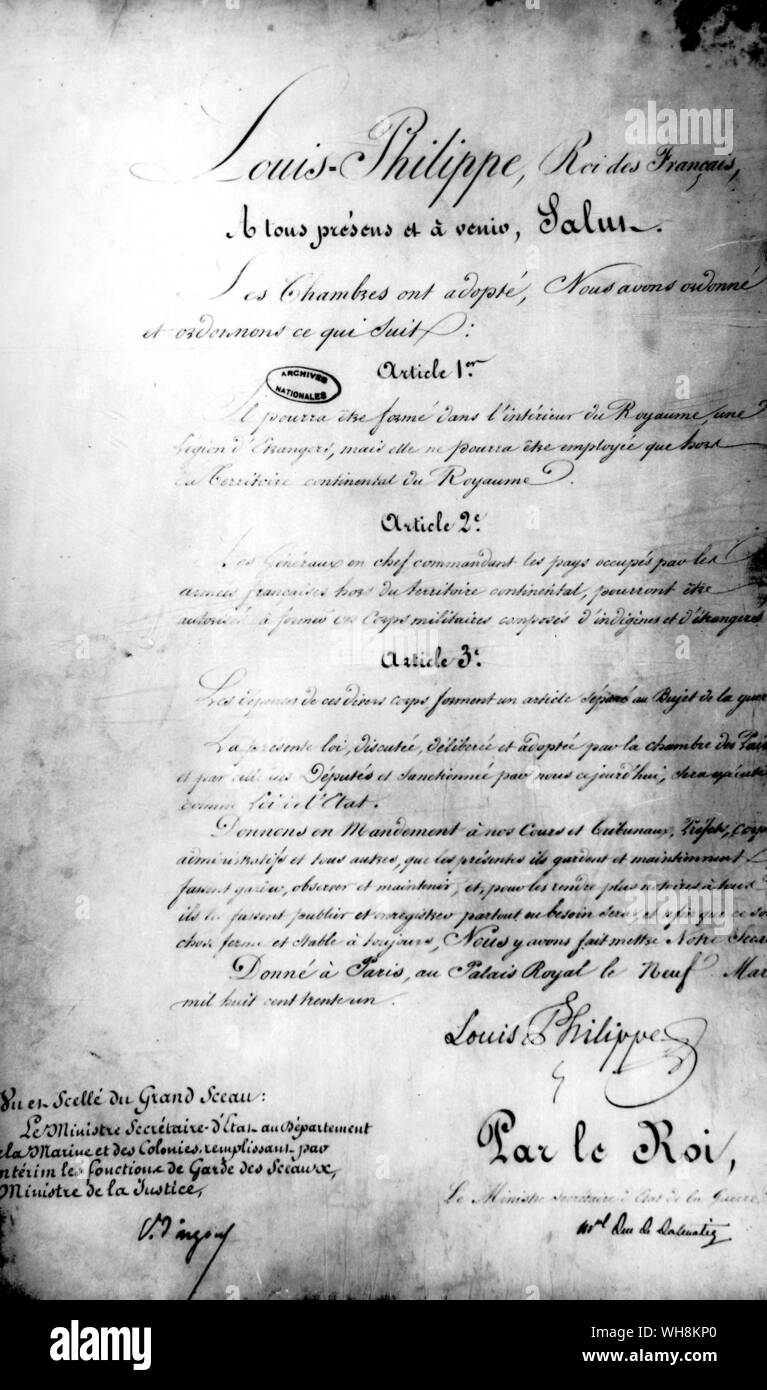 Louis-Philippe, Roi des Français,
A tous présens et à venir, Salut.
Les Chambres ont adopté, Nous avons ordonné
et ordonnons ce qui suit :
Article 1er
ARCHIVES NATIONALES
Il pourra être formé dans l'intérieur du Royaume, une
Légion d'Etrangers, mais elle ne pourra être employée que hors
du territoire continental du Royaume.
Article 2e
Les Généraux en chef commandant les pays occupés par les
armées françaises hors du territoire continental, pourront être
autorisés à former des corps militaires composés d'indigènes et d'étrangers
Article 3e
Les dépenses de ces divers corps forment un article séparé au Bujet de la guer
La présente loi, discutée, délibérée et adoptée par la chambre des Pair
et par celle des Députés et sanctionnée par nous cejourd'hui, sera exécuté
comme Loi de l'Etat.
Donnons en Mandement à nos Cours et tribunaux, Préfets, Corps
administratifs et tous autres, que les présentes ils gardent et maintiennent
fassent garder, observer et maintenir, et, pour les rendre plus notoires à tous
ils les fassent publier et enregistrer partout où besoin sera; et afin que ce soi
chose ferme et stable à toujours, Nous y avons fait mettre Notre Sceau
Donné à Paris, au Palais Royal le Neuf Mar
mil huit cent trente un.
Louis Philippe
Vu et Scellé du Grand Sceau :
Le Ministre Secrétaire-d'Etat au Département
de la Marine et des Colonies, remplissant par
intérim les fonctions de Garde des Sceaux,
Ministre de la Justice,
Par le Roi,
Le Ministre secrétaire d'Etat de la Guerre
Mal Duc de Dalmatie
alamy
Image ID: WH8KP0
www.alamy.com